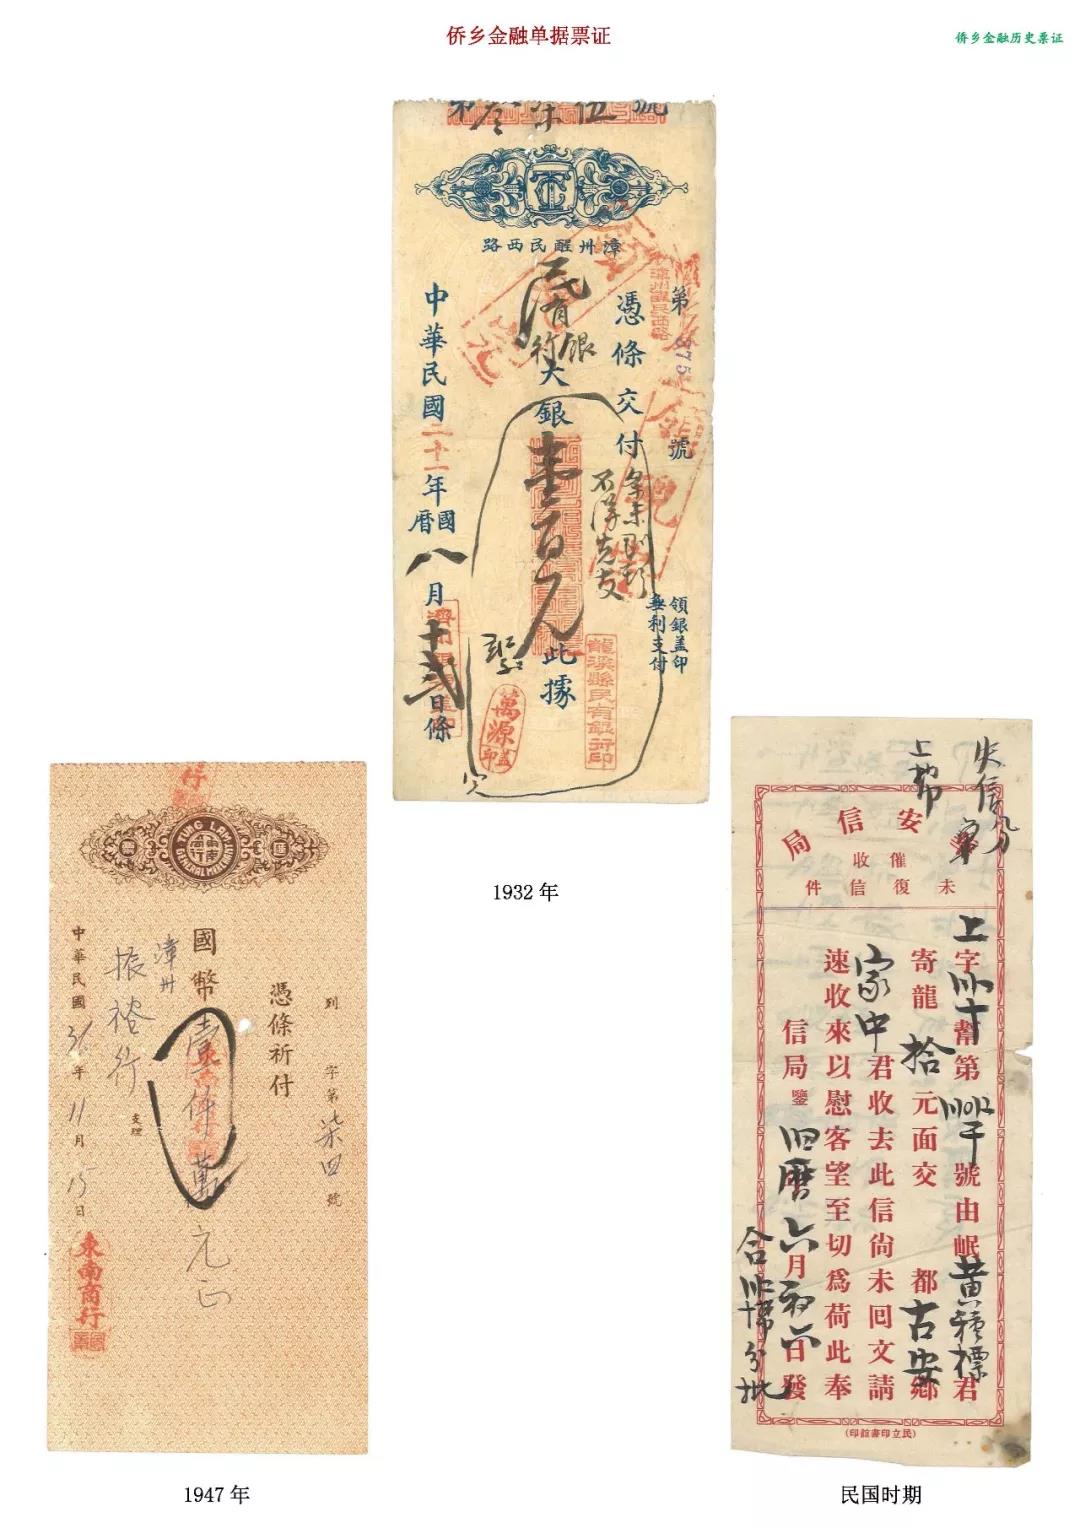 侨乡金融单据票证
侨乡金融历史票证
漳州醒民西路
第 875 號
憑條交付
民有銀行
大銀壹百元
此據
領銀蓋印
無利支付
中華民國二十一年國曆八月十弍日條
龍溪縣民有銀行印
萬源
蓋印
1932 年
行
TUNG LAM
列 字第柒四號
憑條祈付
國幣壹仟萬元正
漳州
振裕行
支理
中華民國36年11月15日
東南商行
1947 年
安信局
催收
未復信件
上字 幫第 號由岷黄種標君
寄龍 拾元面交 都古安鄉
家中君收去此信尙未囘文請
速收來以慰客望至切爲荷此奉
信局鑒 六月初六日發
(民立印書館印)
民国时期